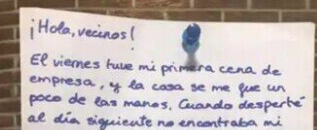 ¡Hola, vecinos!
El viernes tuve mi primera cena de
empresa, y la cosa se me fue un
poco de las manos. Cuando desperté
al día siguiente no encontraba mi